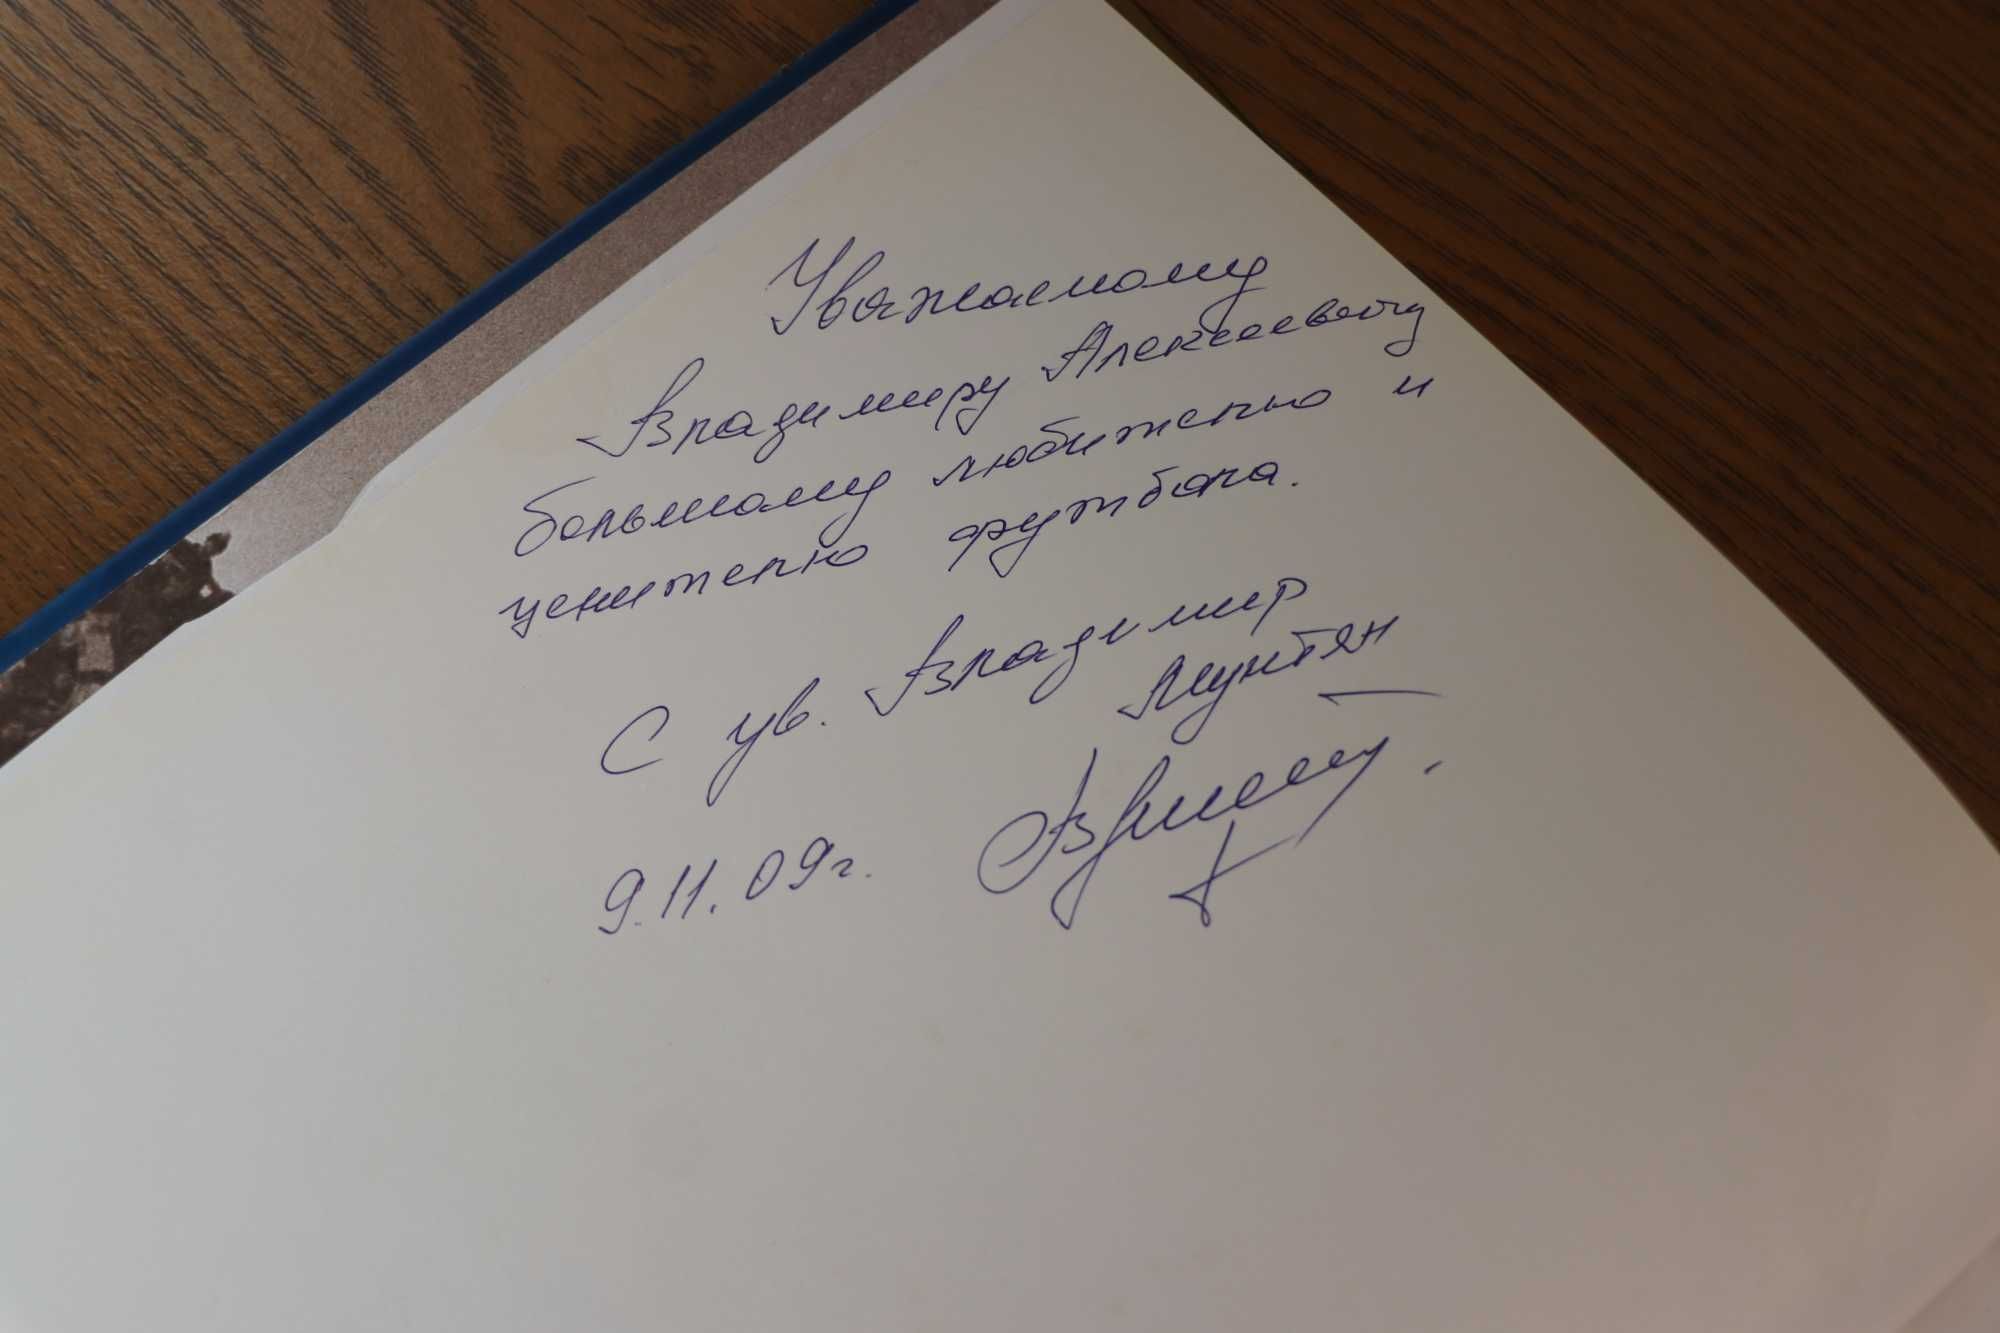 Уважаемому
Владимиру Алексеевичу
большому любителю и
ценителю футбола.
С ув. Владимир
Мунтян
9.11.09г.